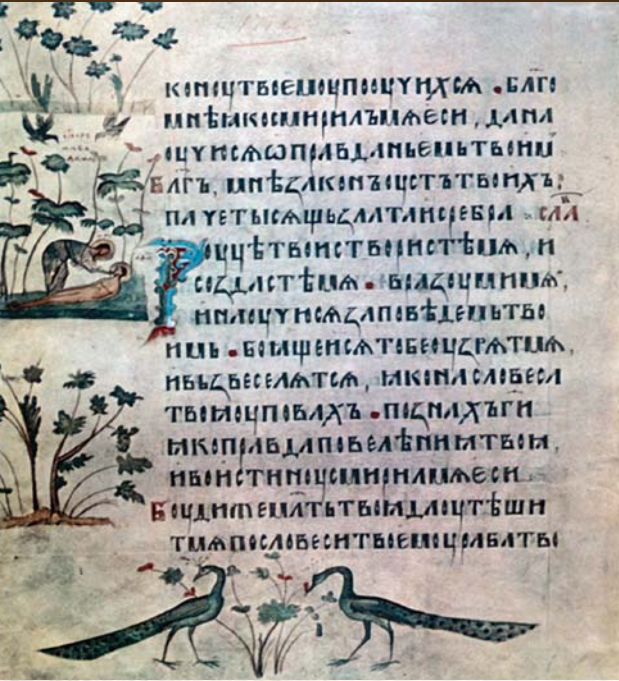 КОНОУТВОЕМОУПООУЧИХСѦ • БЛГО
МНѢꙖКОСМИРИЛЪМѦЕСИ , ДАНА
ОУЧИСѦѠПРАВДАНЬЕМЬТВОИМ
БЛГЪ, МНѢꙀАКОНЪОУСТЪТВОИХЪ:
ПАЧЕТЫСѦЩЬꙀЛАТАИСРЕБРА СЛА
РОУЦѢТВОИСТВОРИСТѢМѦ, И
СОꙀДАСТѢМѦ • ВРАꙀОУМИМѦ,
ИНАОУЧЮСѦꙀАПОВѢДЕМЬТВО
ИМЬ • БОꙖЩЕИСѦТОБЕОУꙀРѦТМѦ,
ИВЬꙀВЕСЕЛѦТСѦ, ꙖКОНАСЛОВЕСА
ТВОꙖОУПОВАХЪ • ПОꙀНАХЪГИ
ꙖКОПРАВДАПОВЕЛѢНИꙖТВОꙖ,
ИВОИСТИНОУСМИРИЛМѦЕСИ
БОУДИЖЕМЛТЬТВОꙖДАОУТѢШИ
ТМѦПОСЛОВЕСИТВОЕМОУРАБАТВО